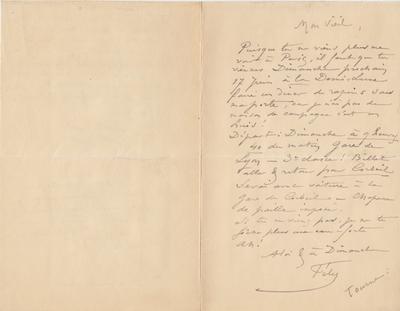 Mon Vieil,
Puisque tu ne viens plus me
voir à Paris, il faut que tu
viennes Dimanche prochain
17 Juin à la Demi-Lune
faire un dîner de rapins sous
ma porte, car je n'ai pas de
maison de campagne c'est un
Départ: Dimanche à 9 heures
40 du matin Gare de
Lyon — 3e classe! Billet
aller & retour pour Corbeil
Serai avec voiture à la
gare de Corbeil — Chapeau
de paille
Si tu ne viens pas, je ne te
ferai plus une eau-forte
Ah!
à Dimanche
Fély
Tourne